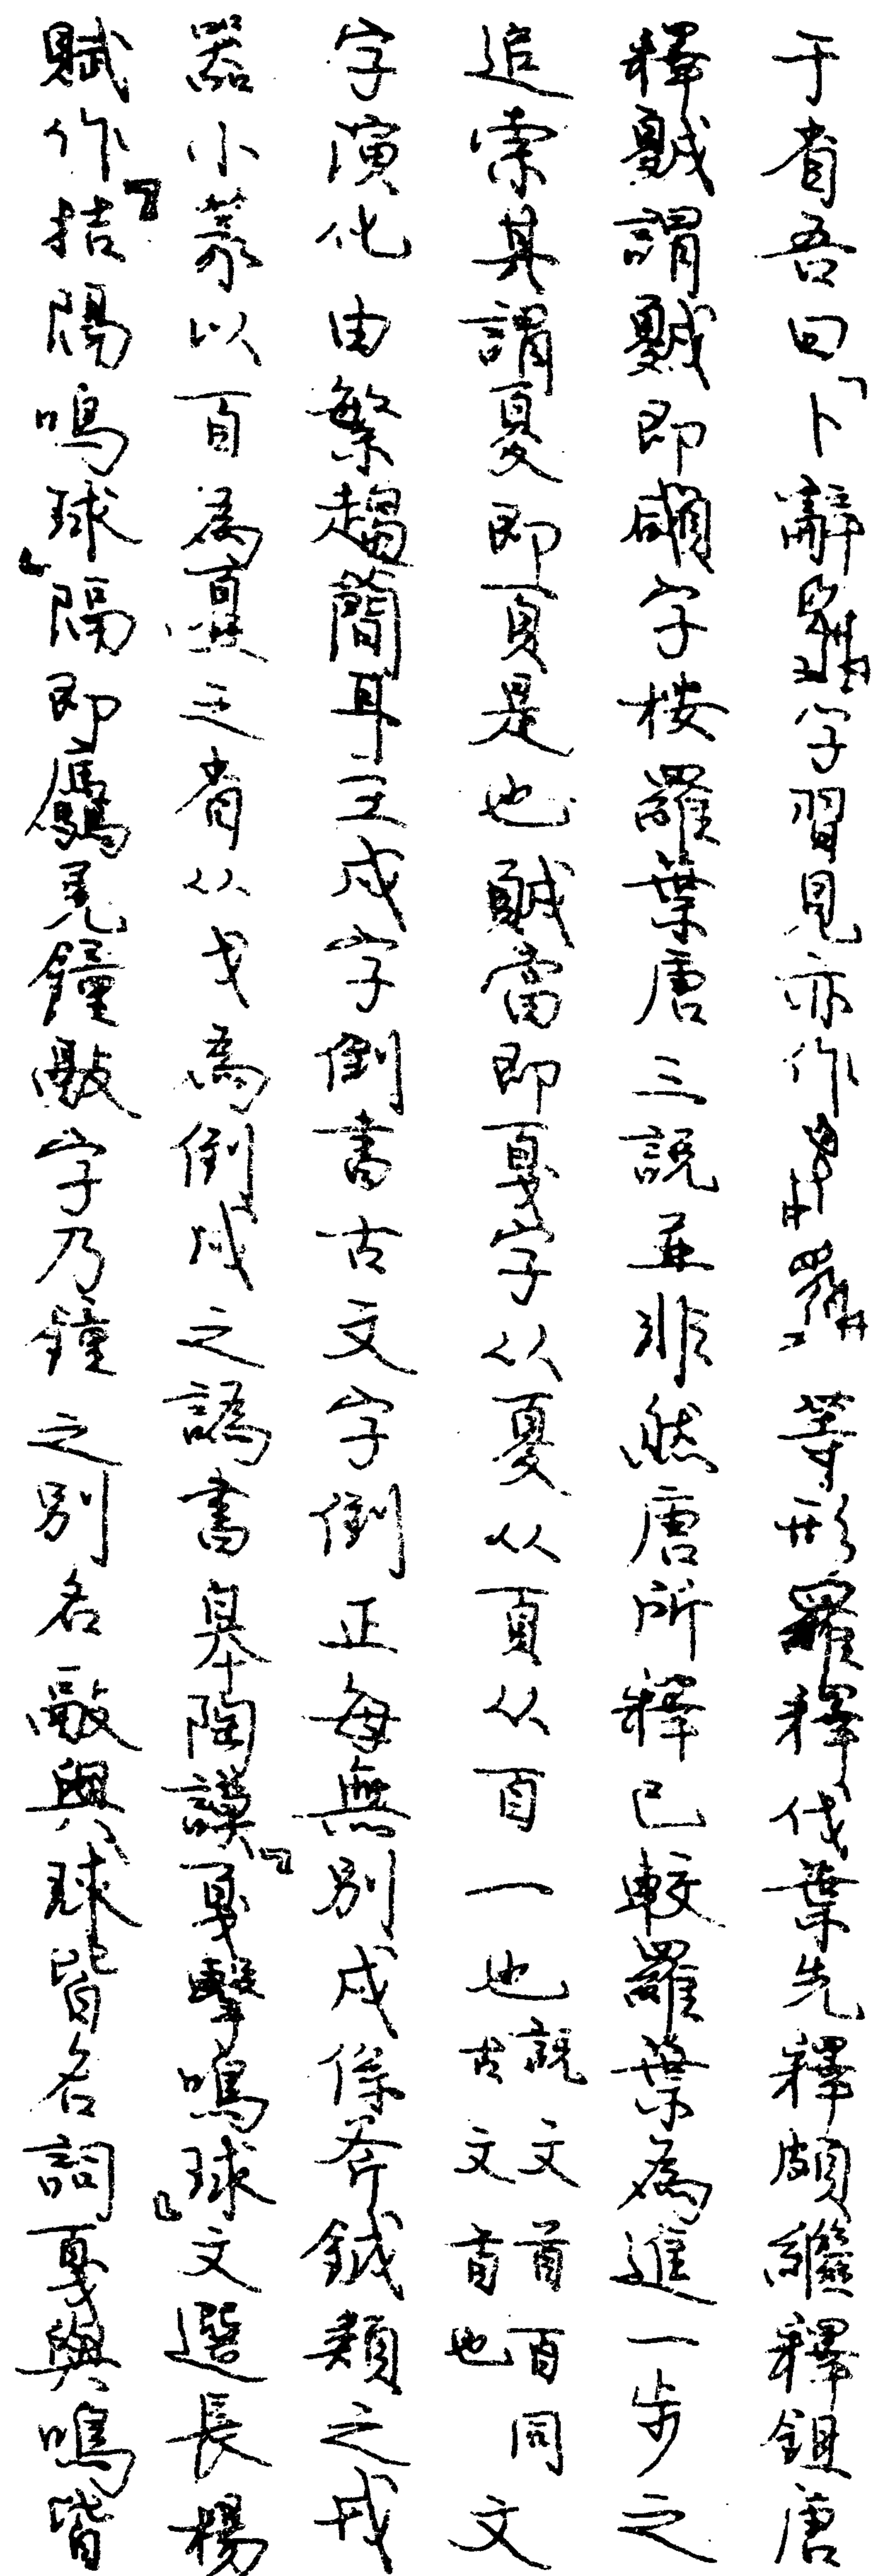 于省吾曰「卜辭字習見亦作等形羅釋伐葉先釋頗繼釋鉏唐
釋謂即字按羅葉唐三說並非然唐所釋已較羅葉為進一步之
追索其謂夏即頁是也當即戛字从夏从頁从百一也說文首百同古文首也文
字演化由繁趨簡耳主戍字倒書古文字倒正每無別戍係斧鉞類之戎
器小篆以百為之省从戈為倒戍之譌書皋陶謨『戛擊鳴球』文選長楊
賦作『拮隔鳴球』隔即鷹羌鐘字乃鐘之別名與球皆名詞戛與鳴皆